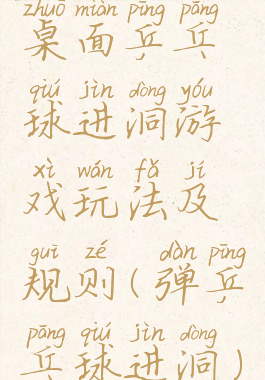 zhuō miàn pīng pāng
桌面乒乓
qiú jìn dòng yóu
球进洞游
xì wán fǎ jí
戏玩法及
guī zé dàn pīng
规则(弹乒
pāng qiú jìn dòng
乓球进洞)